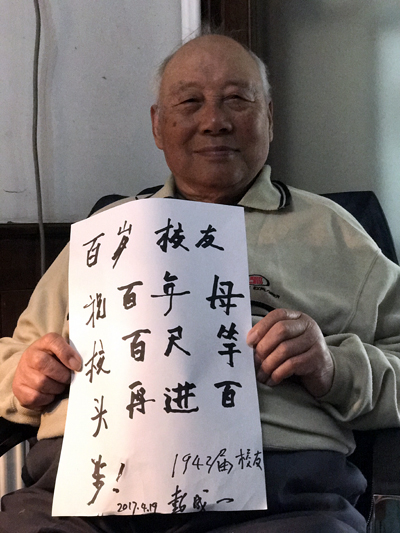 百岁校友
祝百年母
校百尺竿
头再进百
步!
1943届校友
2017.4.19 彭成一